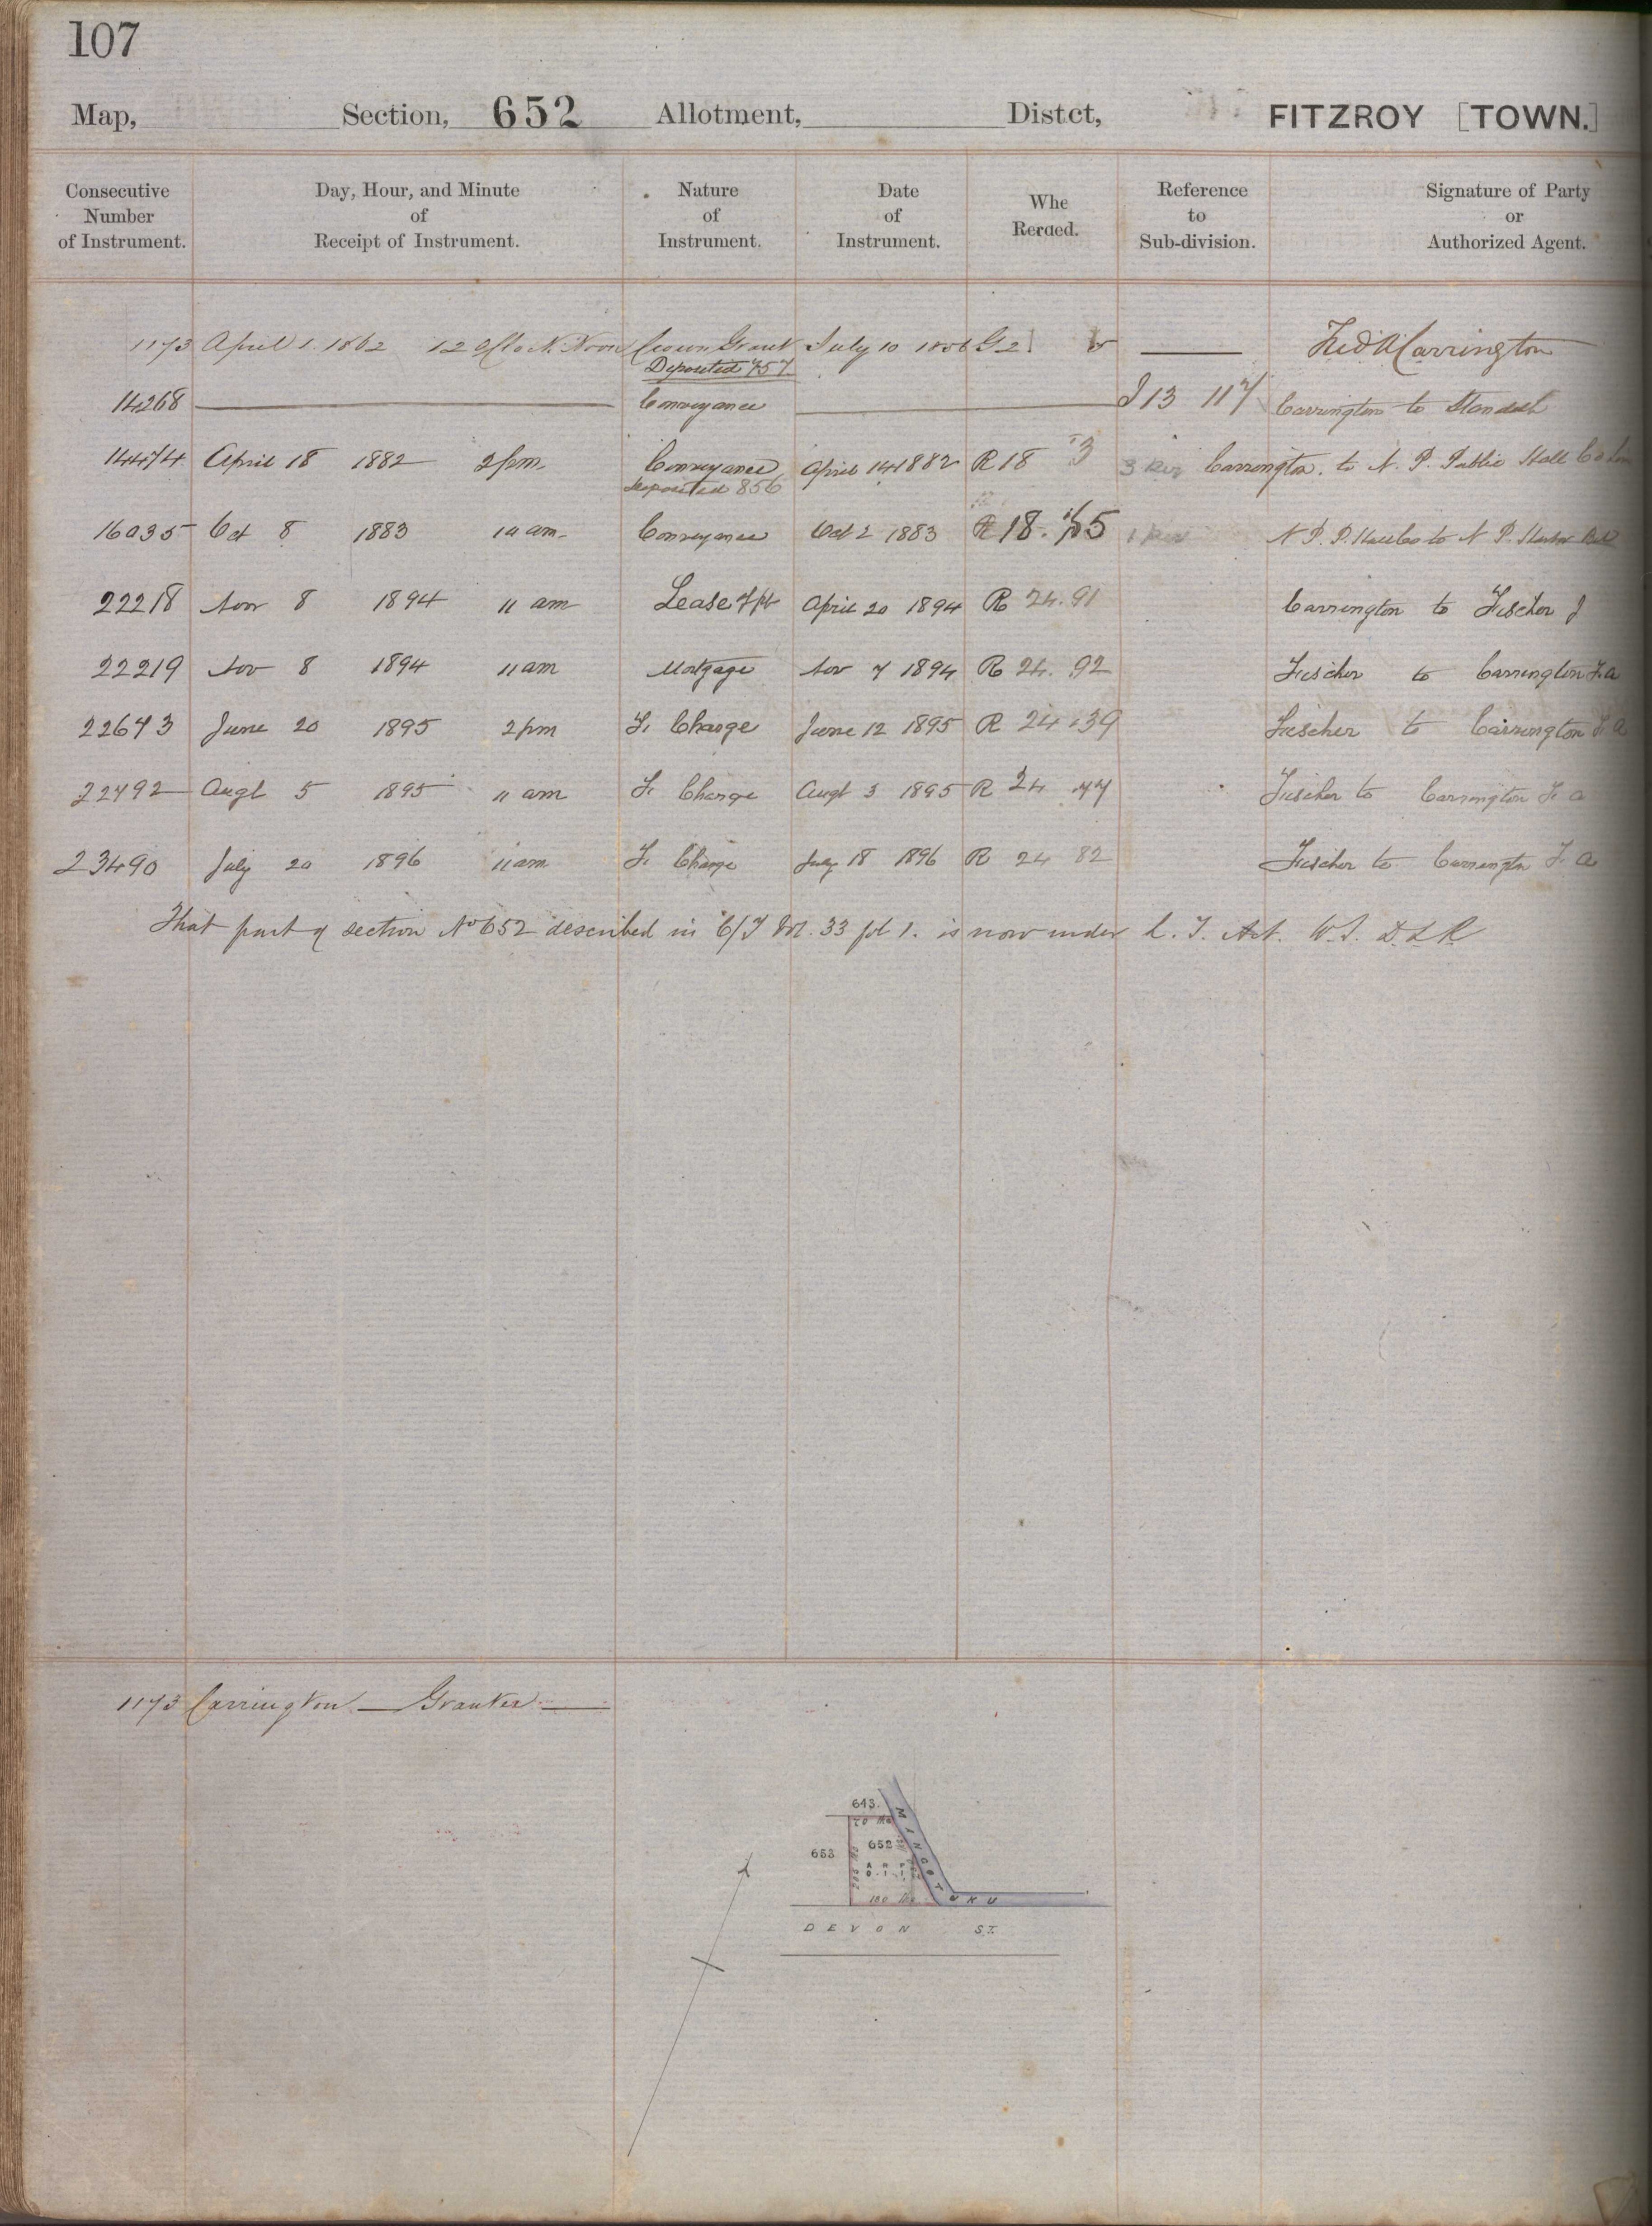 107
Map, Section, 652 Allotment, Distct, FITZROY [TOWN.]
Consecutive Number of Instrument.
Day, Hour, and Minute of Receipt of Instrument.
Nature of Instrument.
Date of Instrument.
Whe Rerded.
Reference to Sub-division.
Signature of Party or Authorized Agent.
1173 April 1. 1862 12 o'Clo N. Noon Crown Grant July 10 G 2 Fred A Carrington
Deposited 757
14268 Conveyance I 13 117 Carrington to Standish
14474 April 18 1882 2 pm Conveyance April 14 1882 R 18 3 Carrington to N. P. Public Hall Co
Deposited 856
16035 Oct 8 1883 10 am Conveyance Oct 2 1883 R 18. N. P. P. Hall Co to N P. Harbor Bd
22218 Nov 8 1894 11 am Lease of pt April 20 1894 R 24. 91 Carrington to Fischer J
22219 Nov 8 1894 11 am Mortgage Nov 7 1894 R 24. 92 Fischer to Carrington F. A
22643 June 20 1895 2 pm F. Charge June 12 1895 R 24 139 Fischer to Carrington F. A
22792 Augt 5 1895 11 am F. Charge Augt 3 1895 R 24 Fischer to Carrington F. A
23490 July 20 1896 11 am F. Charge July 18 1896 R 24 82 Fischer to Carrington F. A
That part of section No 652 described in C/T Vol. 33 fol 1. is now under L. T. Act. W. S. D L R
1173 Carrington — Grantee
643
653
652
A R P
0 . 1 . 1
MANGOTUKU
DEVON ST.